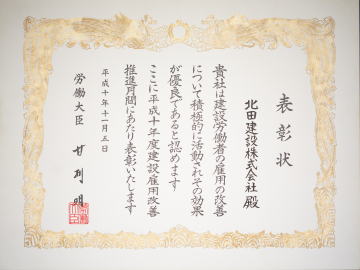 表彰状
北田建設株式会社 殿
貴社は建設労働者の雇用の改善
について積極的に活動されその効果
が優良であると認めます
ここに平成十年度建設雇用改善
推進月間にあたり表彰いたします
平成十年十一月五日
労働大臣 甘利明